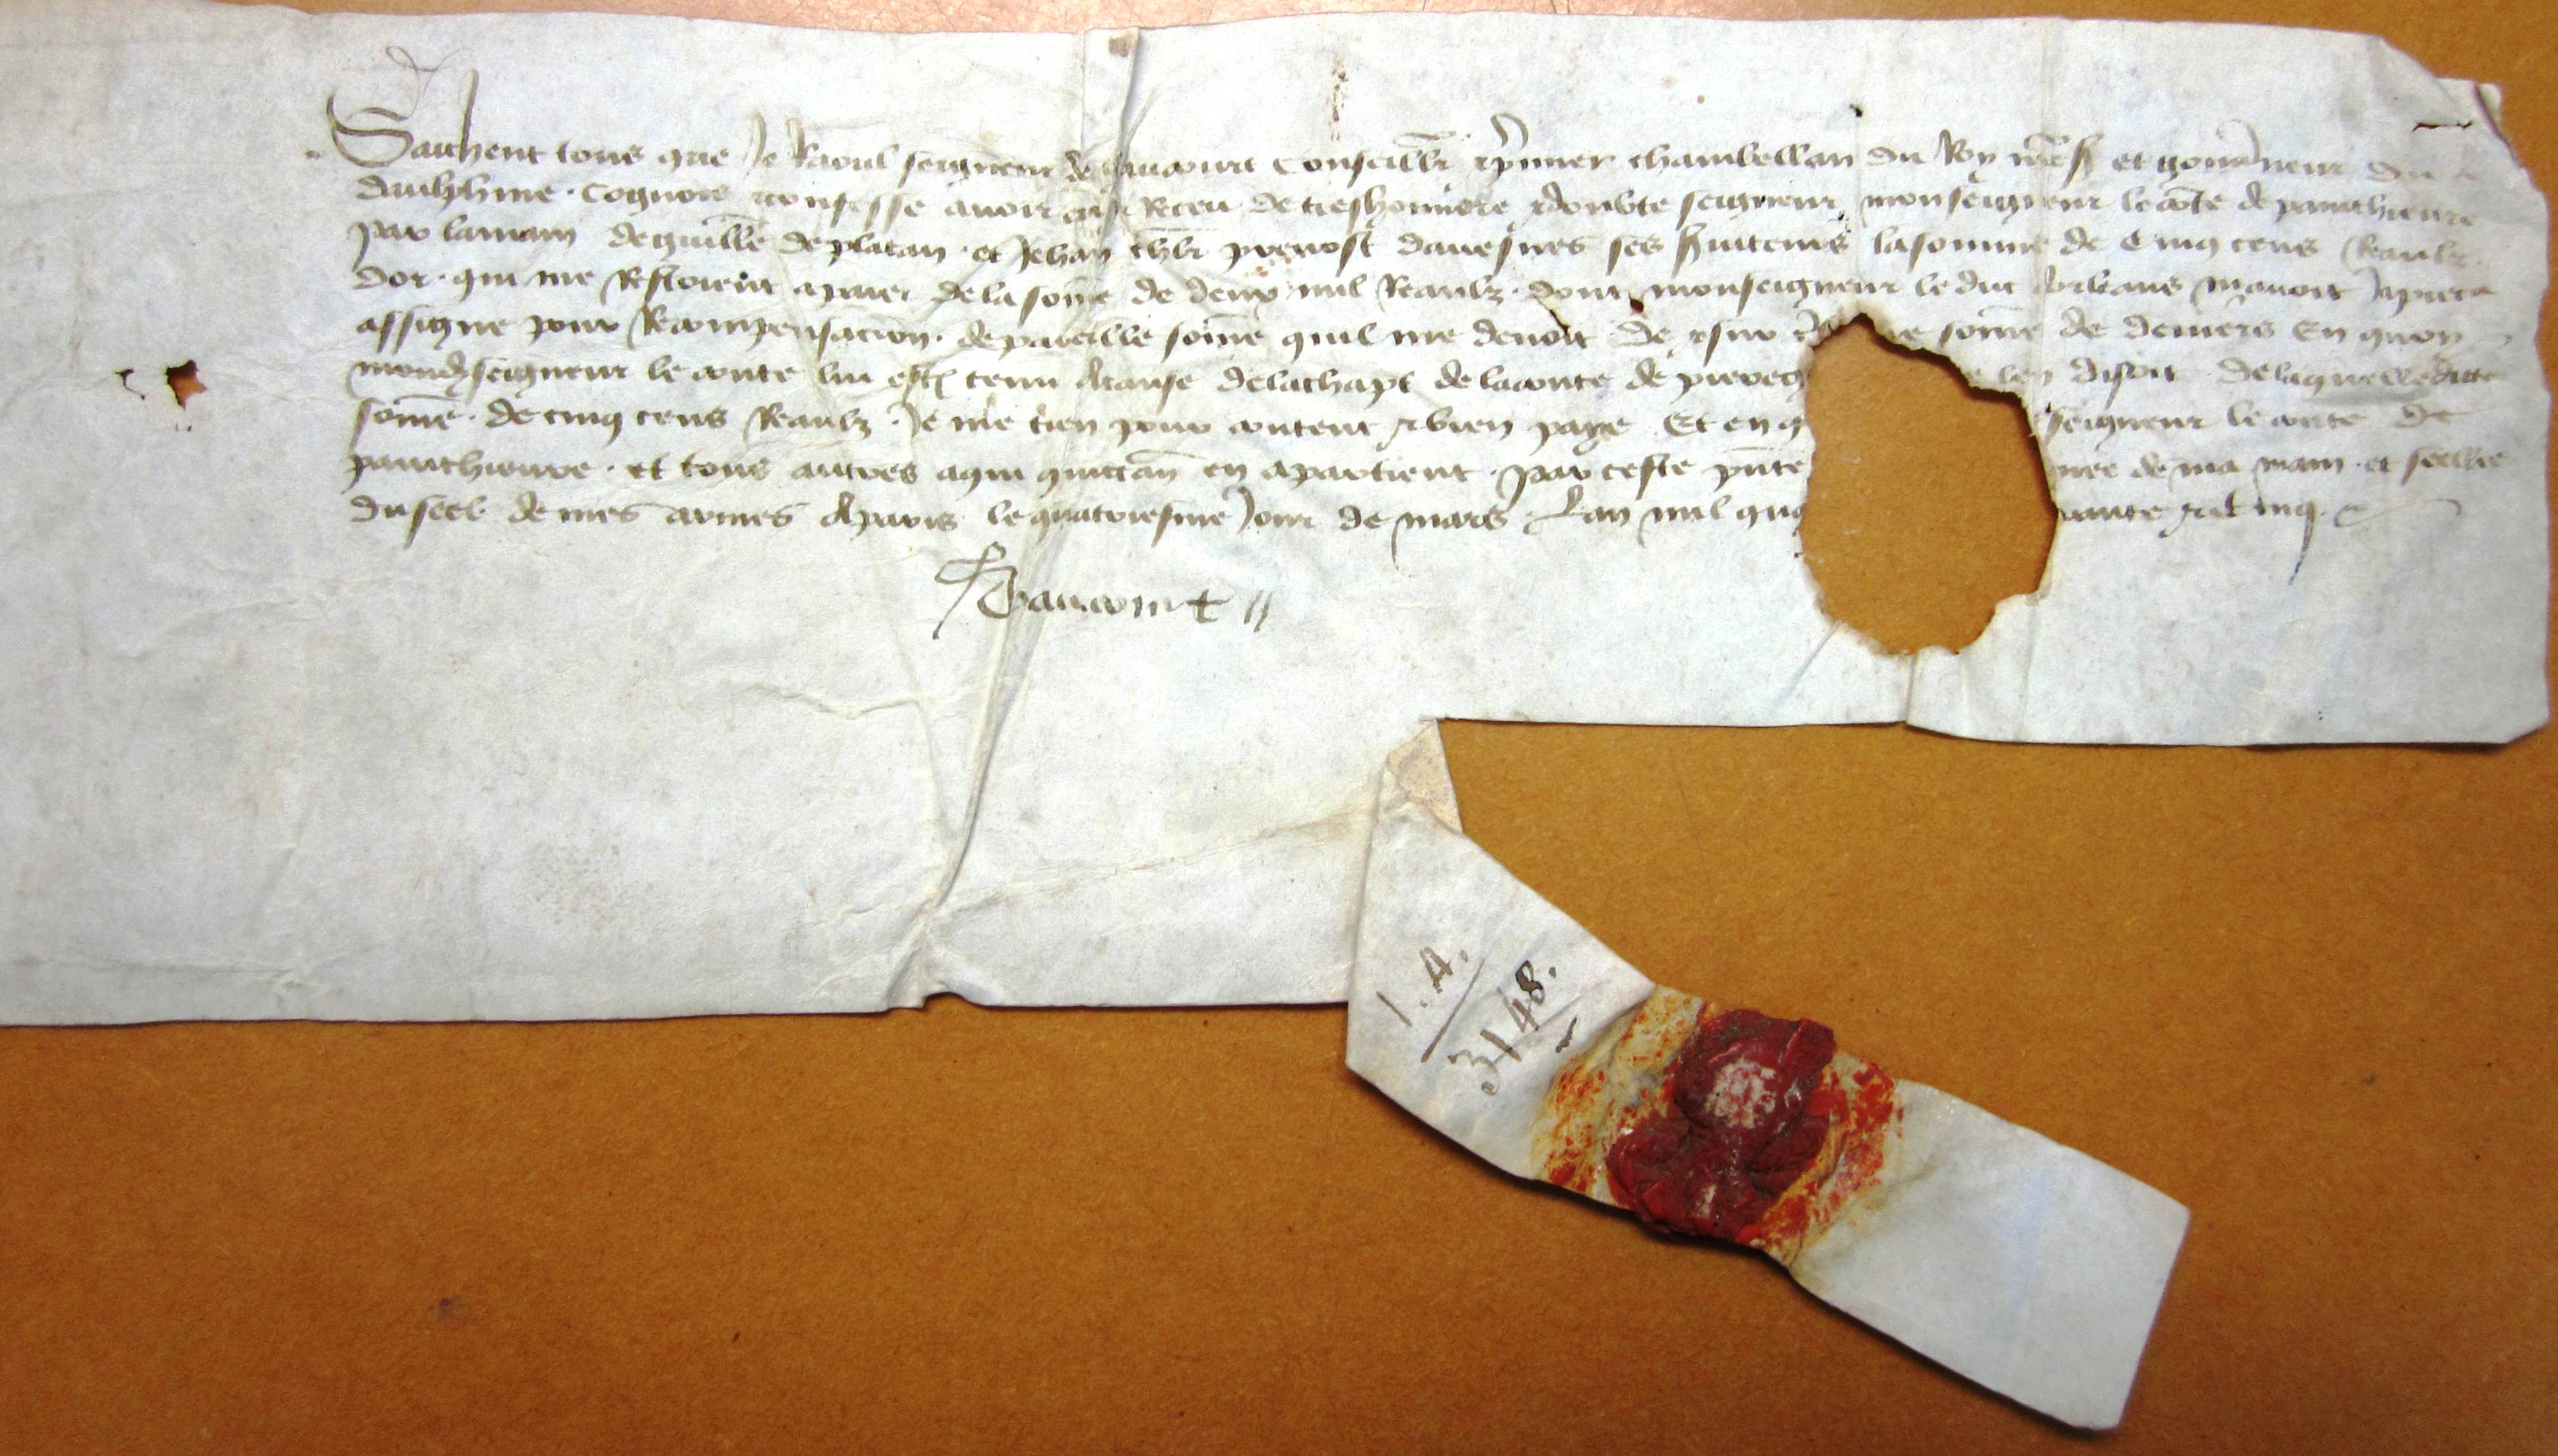 Sachent tous que Je Raoul seigneur de Gaucourt Conseillr et pmier chambellan du Roy nres et gouvneur du
daulphine. Cognois et confesse avoir eu et Receu de treshonnore et doubte seigneur monseigneur le cote de painthieure
par lamain deguille de platan. et Jehan prevost davesnes ses suiteurs lasomme de Cinq cens Reaulx
dor. qui me Restoient apaier delasome de deux mil Reaulx. dont monseigneur le duc dorleans mavoit Apieca
assigne pour Recompensacion. depareille some quil me devoit de et sur some de deniers En quoy
mond seigneur le conte lui est tenu Acause delachapt delaconte de piereg disoit. delaquelle dicte
some. de cinq cens Reaulx. Je me tien pour content et bien paye. Et en q seigneur le conte de
painthieure. et tous autres aqui quictan en apartient. par ceste pnte nee de ma main. et seellee
du seel de mes armes Aparis le quatriesme Jour de mars. Lan mil qua rante et cinq.
Gaucourt
1. A.
3148.